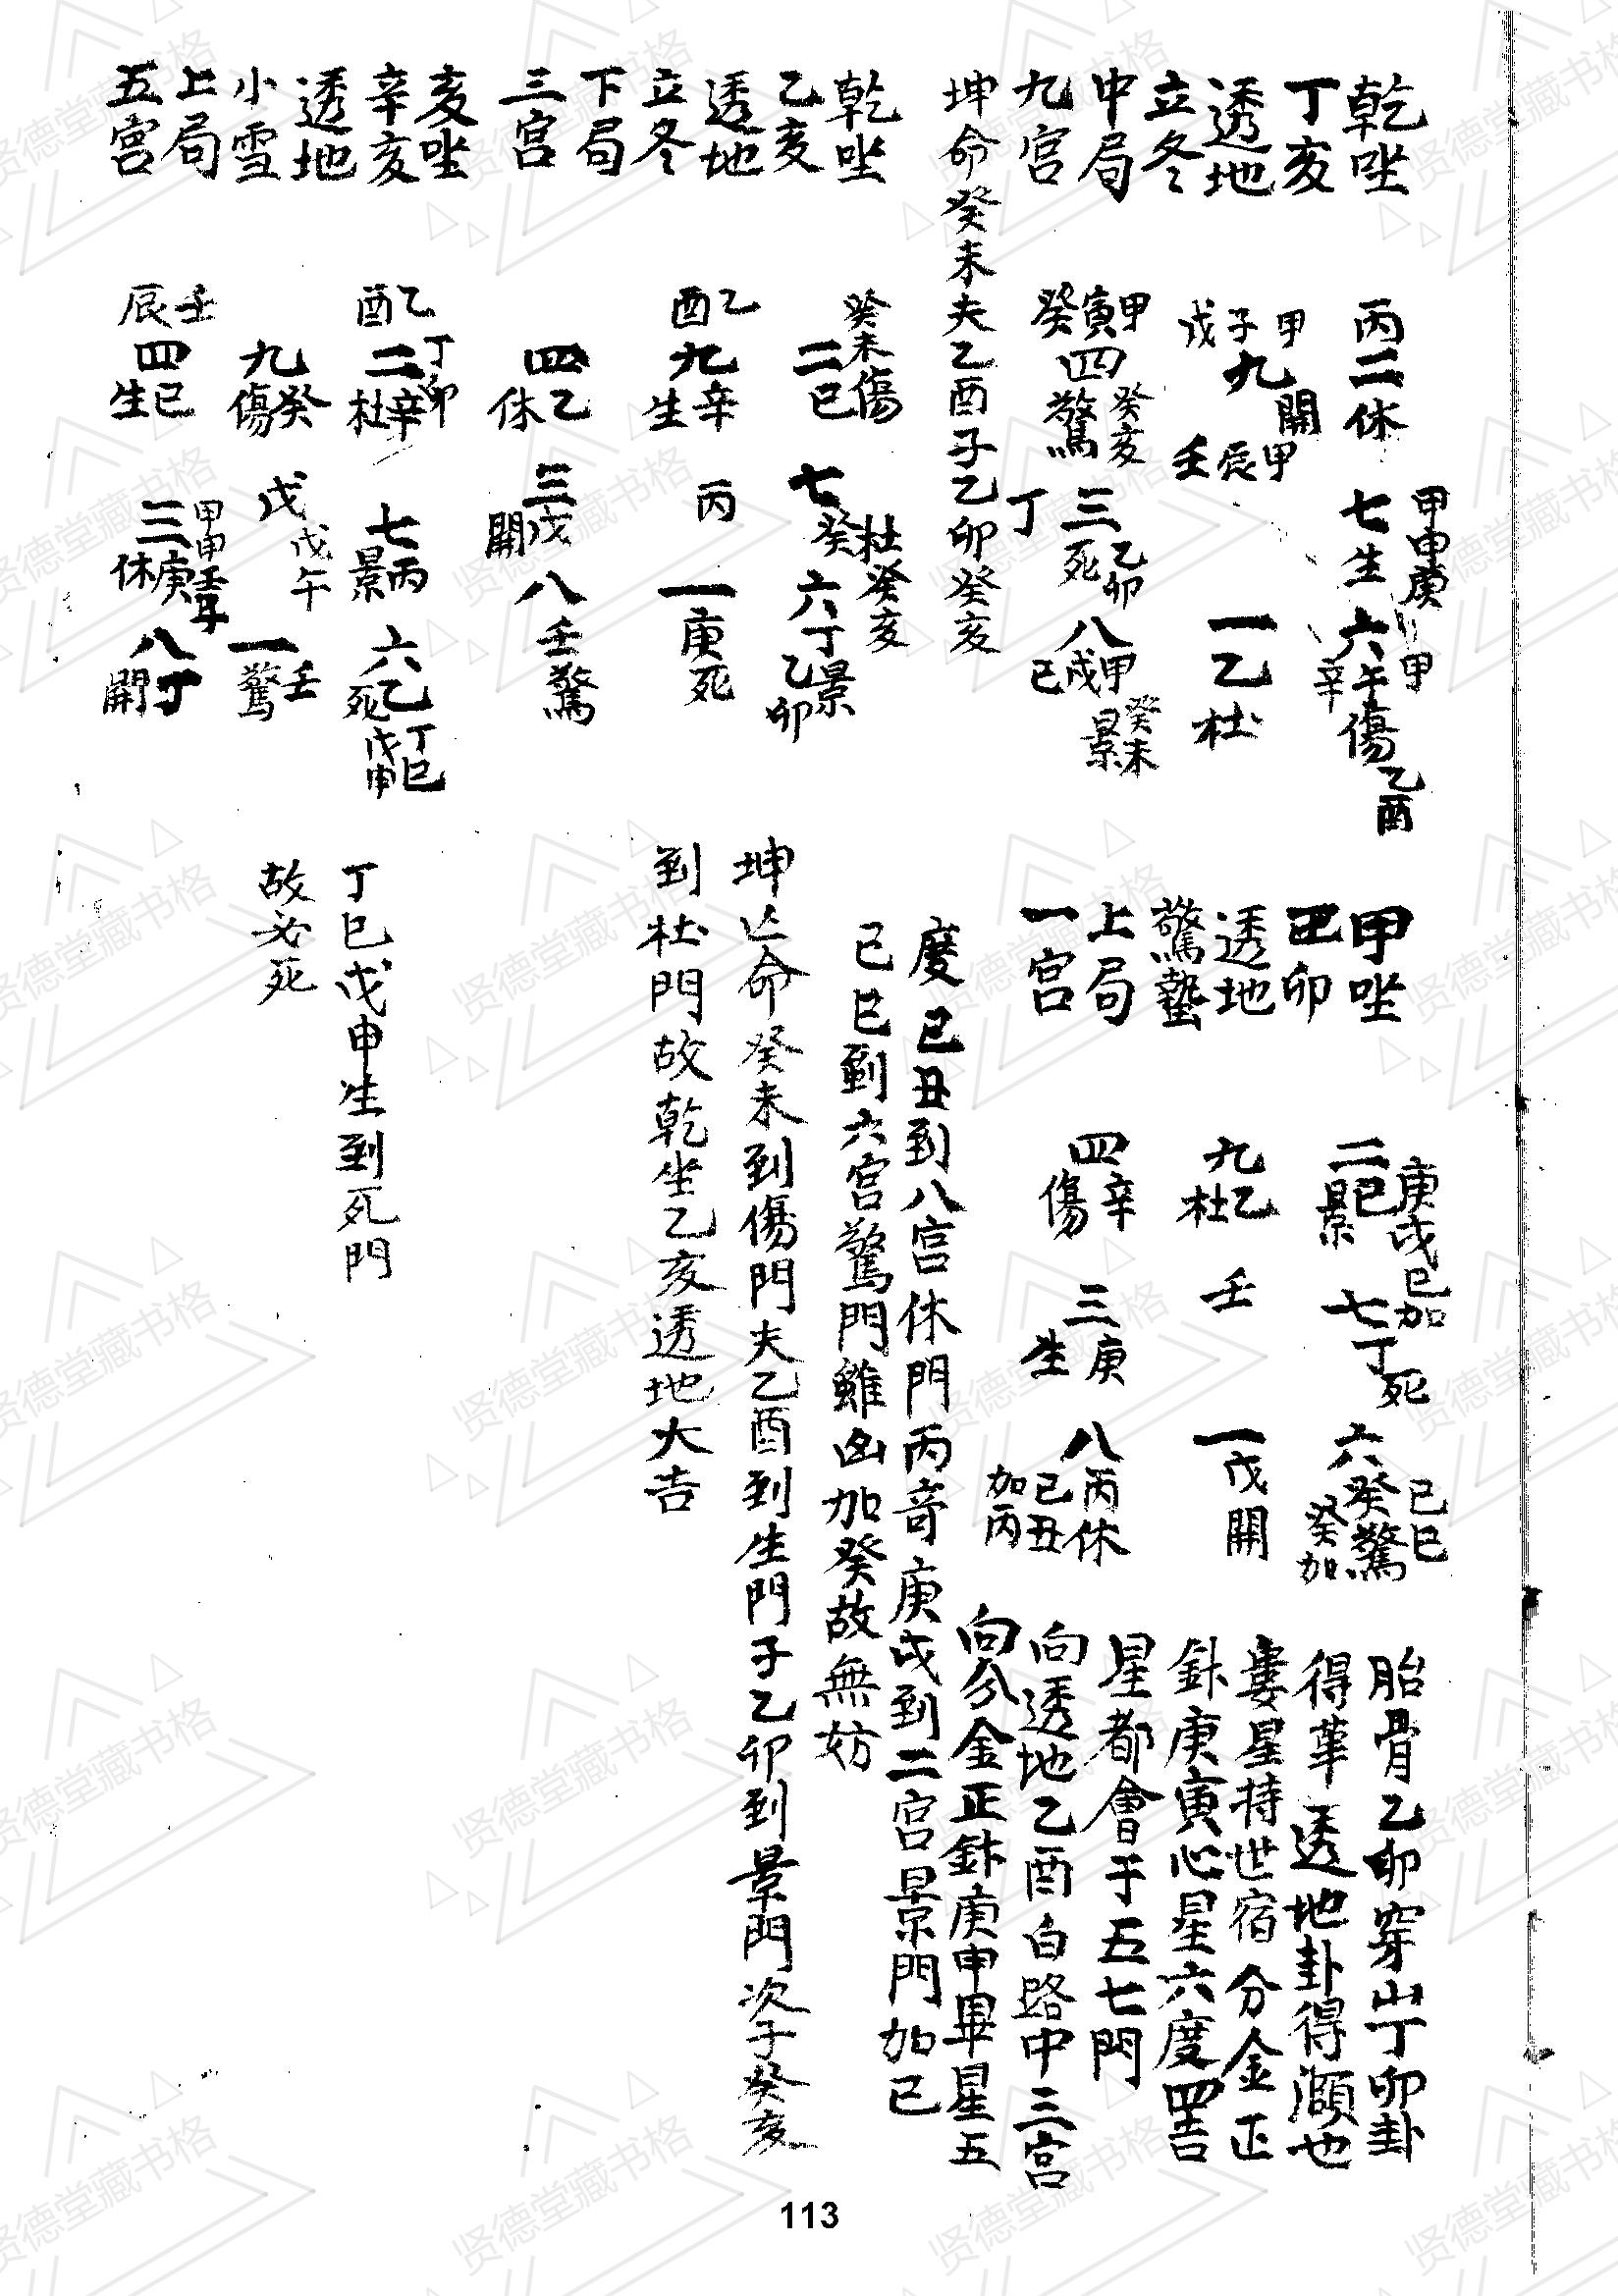 乾坐
丁亥
透地
立冬
中局
九宮
丙二休
甲申庚
七生
六甲午辛傷
乙酉
甲子戊
九開
甲辰壬
一乙杜
甲寅癸
四驚
癸亥
三死
乙卯
丁
八甲戌己
景
癸未
坤命癸未夫乙酉子乙卯癸亥
乾坐
乙亥
透地
立冬
下局
三宮
癸未傷
二巳
七癸
杜癸亥
六丁景
乙卯
乙酉
九辛
生
丙
一庚死
四乙
休
三戊
開
八壬驚
亥坐
辛亥
透地
小雪
上局
五宮
乙酉
丁卯
二辛
杜
七丙
景
六乙
死
丁巳
戊申
九癸
傷
戊
戊午
一壬
驚
壬辰
四巳
生
三庚
休
甲申
八丁
開
甲坐
巳卯
透地
驚蟄
上局
一宮
庚戌巳加
二巳
景
七丁死
六癸驚
己巳
癸加
九乙
杜
壬
一戊開
四辛
傷
三庚
生
八丙休
已丑
加丙
胎骨乙卯穿山丁卯卦
得革透地卦得灝也
婁星持世宿分金正
針庚寅心星六度四吉
星都會于五七門
向透地乙酉白路中三宮
向分金正針庚申畢星五
度已丑到八宮休門丙奇庚戌到二宮景門加已
己巳到六宮驚門雖凶加癸故無妨
坤亡命癸未到傷門夫乙酉到生門子乙卯到景門次子癸亥
到杜門故乾坐乙亥透地大吉
丁巳戊申生到死門
故必死
113
贤德堂藏书格